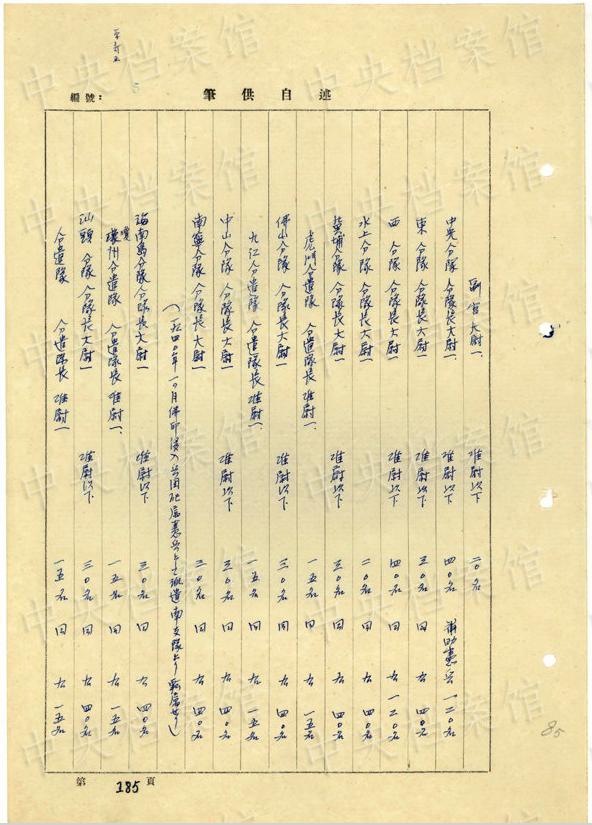 編號：
筆供自述
副官大尉一、 准尉以下 二〇名
中央分隊 分隊長大尉一、 准尉以下 四〇名 補助憲兵 一二〇名
東 分隊 分隊長大尉一 准尉以下 三〇名 同 右 四〇名
西 分隊 分隊長大尉一 准尉以下 四〇名 同 右 一二〇名
水上分隊 分隊長大尉一 二〇名 同 右 四〇名
黄埔分隊 分隊長大尉一 准尉以下 三〇名 同 右 四〇名
虎門分遣隊 分遣隊長准尉一、 一五名 同 右 一五名
佛山分隊 分隊長大尉一 准尉以下 三〇名 同 右 四〇名
九江分遣隊 分遣隊長准尉一 一五名 同 右 一五名
中山分隊 分隊長大尉一 准尉以下 三〇名 同 右 四〇名
南寧分隊 分隊長大尉一 三〇名 同 右 四〇名
(一九四〇年一〇月佛印侵入兵団配属憲兵として派遣南支隊より転属せり)
海南島分隊分隊長大尉一 准尉以下 三〇名 同 右 四〇名
瓊州分遣隊 分遣隊長准尉一、 一五名 同 右 一五名
汕頭分隊 分隊長大尉一 准尉以下 三〇名 同 右 四〇名
分遣隊 分遣隊長 准尉一 一五名 同 右 一五名
第 185 頁
85
中央档案馆